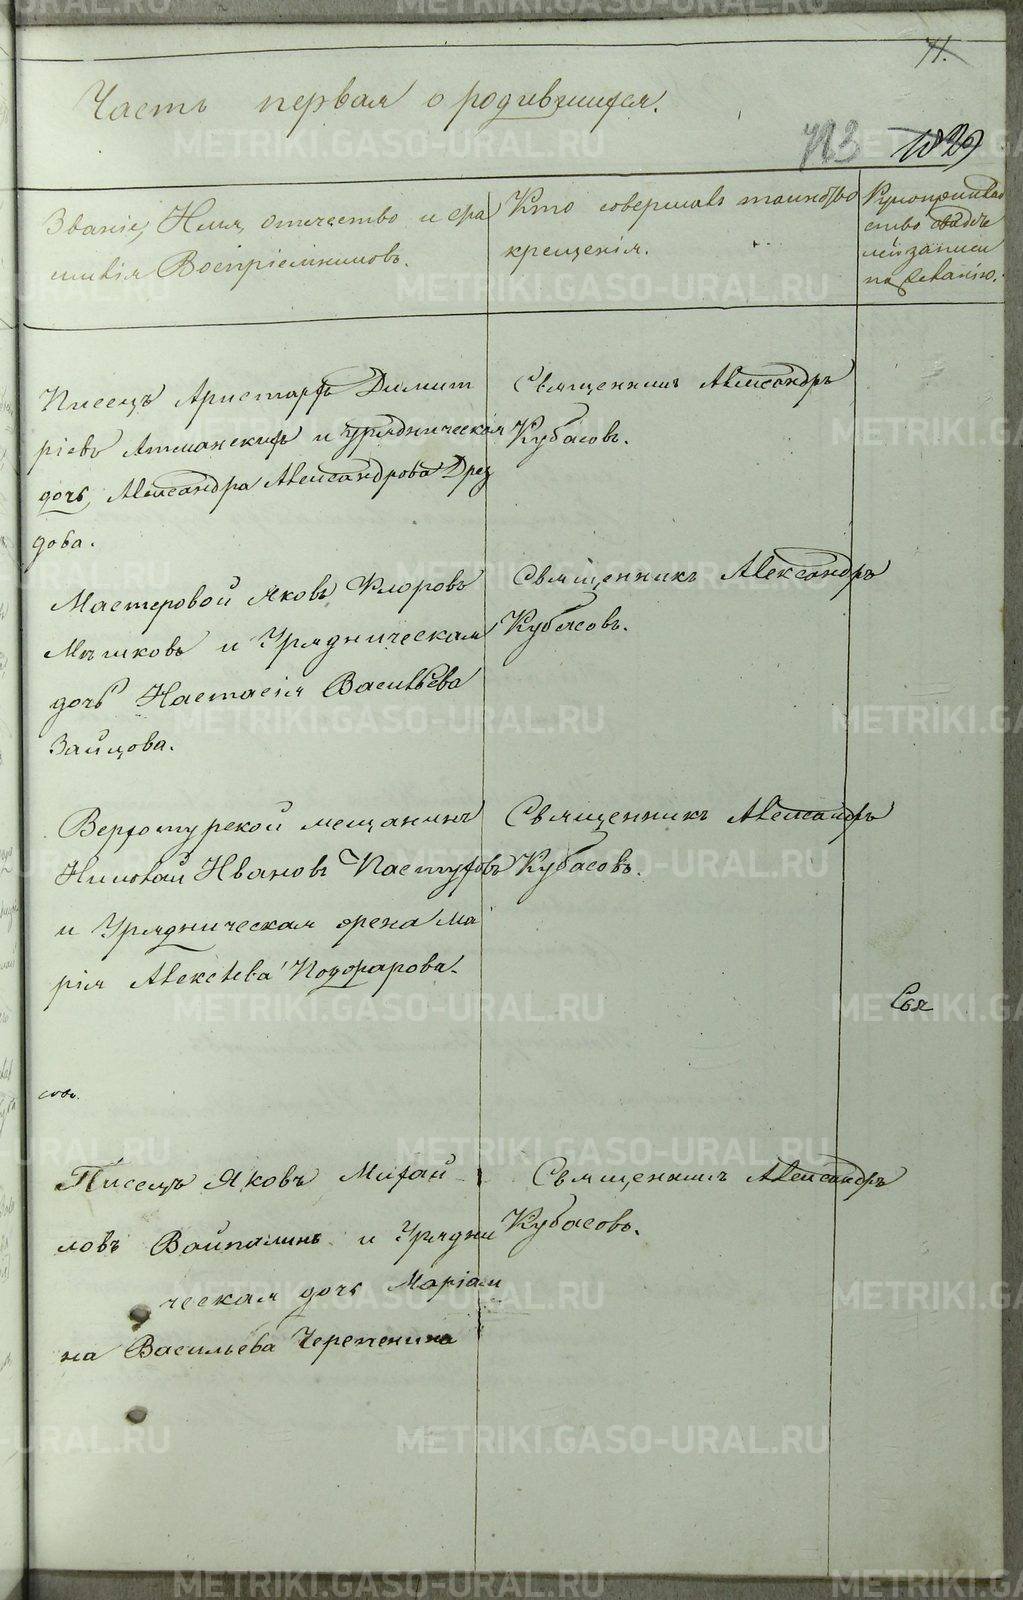 71.
Часть первая о родившихся.
723 1029
Званіе, Имя, отечество и фа
милія Воспріемниковъ.
Кто совершалъ таинство
крещенія.
Рукоприклад
ство свидѣте
лей записи
по желанію.
Писецъ Аристархъ Димит
ріевъ Атманскихъ и урядническая
дочь, Александра Александрова Дрез
дова.
Священникъ Александръ
Кубасовъ.
Мастеровой Яковъ Флоровъ
Мѣшковъ и Урядническая
дочь Настасія Васильева
Зайцова.
Священникъ Александръ
Кубасовъ.
Верхотурской мещанинъ
Николай Ивановъ Пастуховъ
и Урядническая жена Ма
рія Алексѣева Пожарова.
Священникъ Александръ
Кубасовъ.
Свя
совъ.
Писецъ Яковъ Михай
ловъ Вайпалинъ и Урядни
ческая дочь Маріам
на Васильева Черепенина
Священникъ Александръ
Кубасовъ.
METRIKI.GASO-URAL.RU